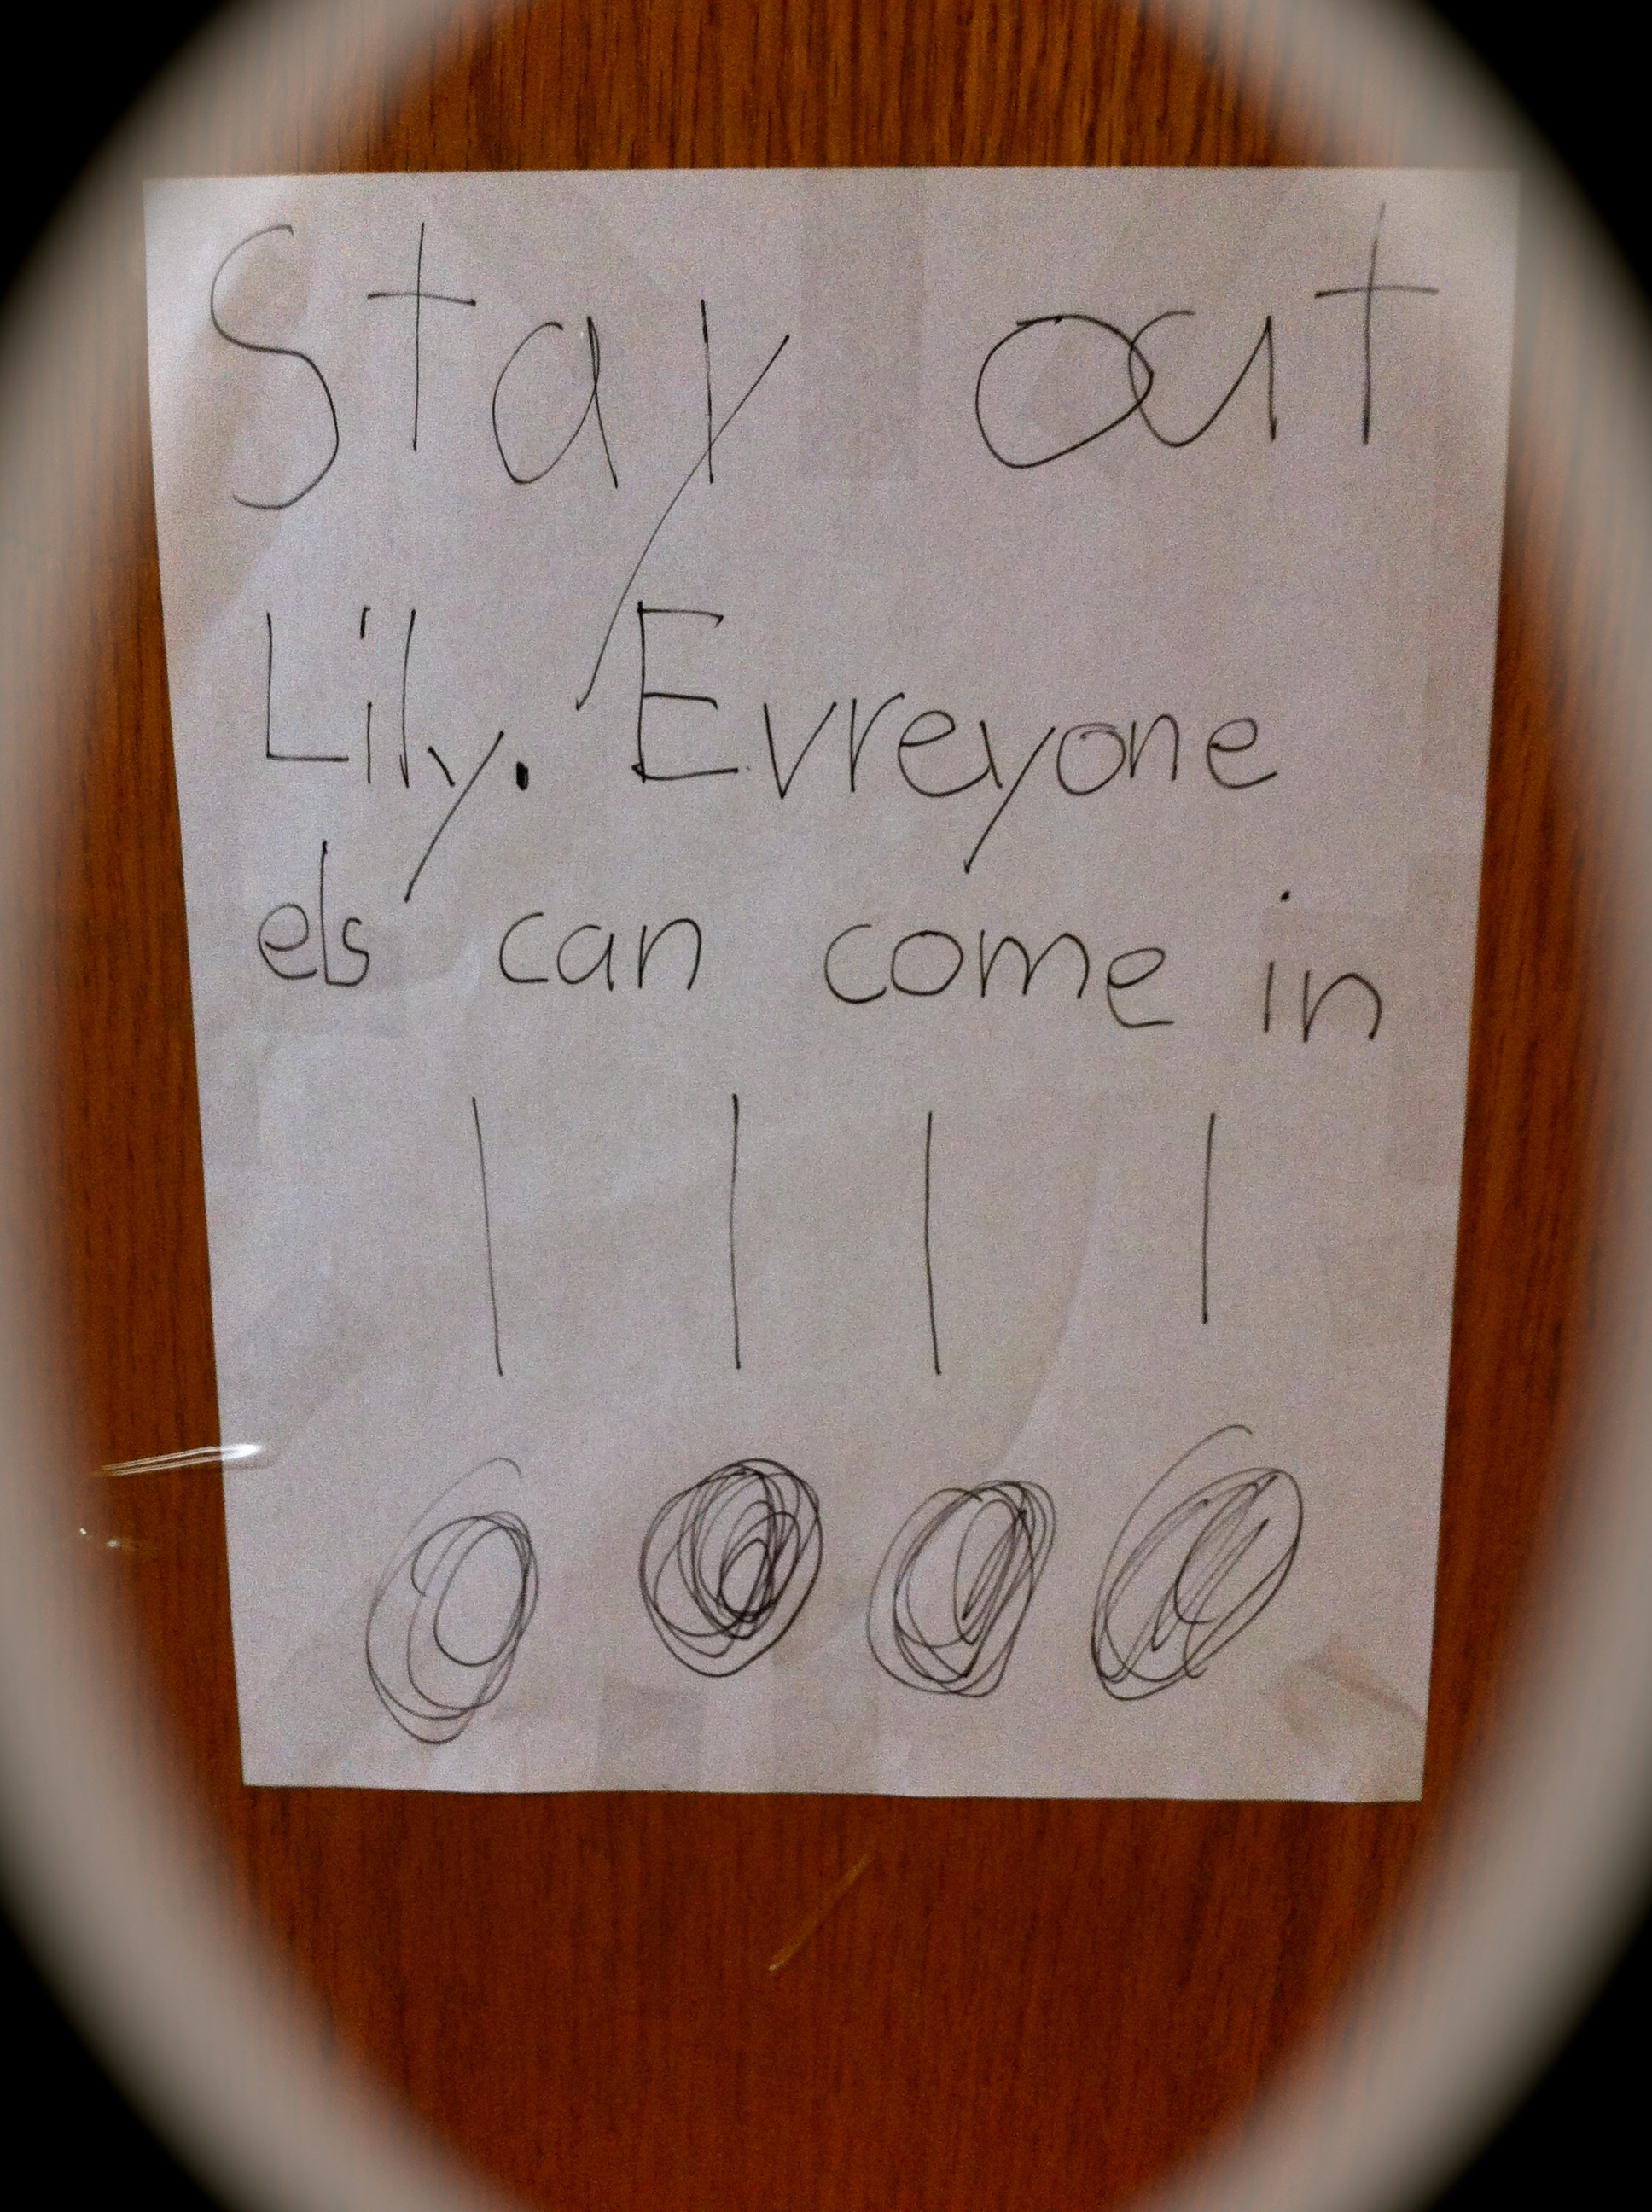 Stay out
Lily. Evreyone
els can come in
! ! ! !